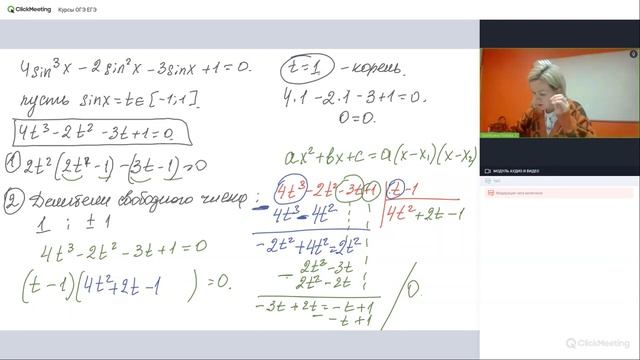 ClickMeeting
Курсы ОГЭ ЕГЭ
4sin³x − 2sin²x − 3sinx + 1 = 0.
пусть sinx = t ∈ [−1;1].
4t³ − 2t² − 3t + 1 = 0
① 2t²(2t² − 1) − (3t − 1) = 0
② Делители свободного числа:
1 ; ±1
4t³ − 2t² − 3t + 1 = 0
(t − 1)(4t² + 2t − 1 ) = 0.
t = 1 − корень.
4·1 − 2·1 − 3 + 1 = 0.
0 = 0.
ax² + bx + c = a(x − x₁)(x − x₂)
4t³ − 2t² − 3t + 1 | t − 1
4t³ − 4t² | 4t² + 2t − 1
−2t² + 4t² = 2t²
− 2t³ − 3t
2t² − 2t
−3t + 2t = −t + 1
− −t + 1
0
МОДУЛЬ АУДИО И ВИДЕО
ЧАТ
ClickMeeting